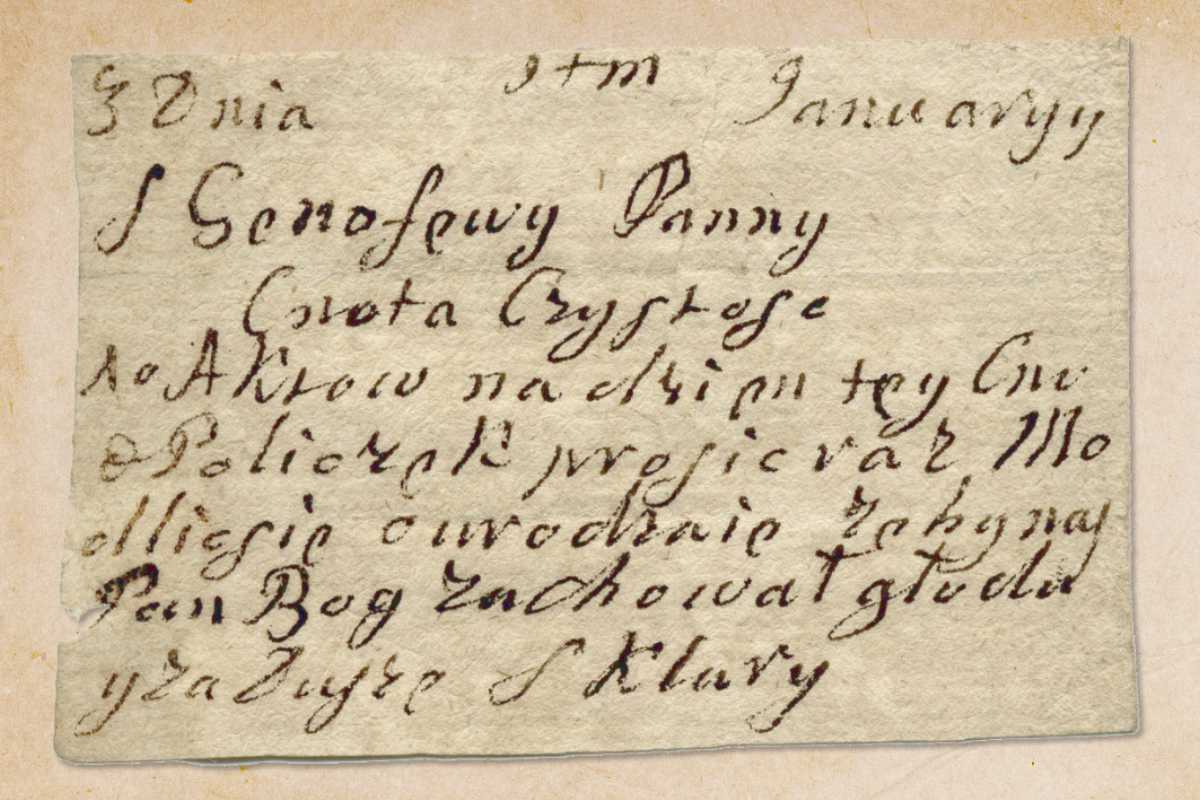 3 Dnia Januaryy
S Genofewy Panny
Cnota Czystosc
Aktow na dzien tey Cno
Policzek prosic raz Mo
dlicsie ourodzaie zebynas
Pan Bog zachował głodu
yza Duszę S Klary